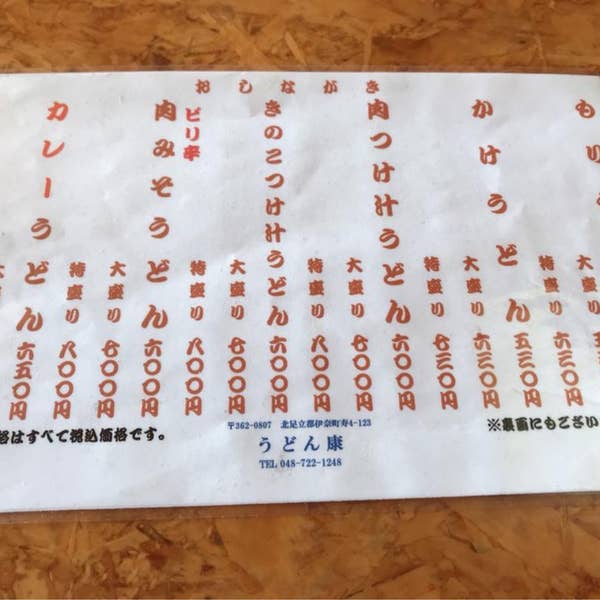 おしながき
もり
かけうどん 五三〇円
大盛り 六三〇円
特盛り 七三〇円
肉つけ汁うどん 六〇〇円
大盛り 七〇〇円
特盛り 八〇〇円
きのこつけ汁うどん 六〇〇円
大盛り 七〇〇円
特盛り 八〇〇円
ピリ辛
肉みそうどん 六〇〇円
大盛り 七〇〇円
特盛り 八〇〇円
カレーうどん 六五〇円
※裏面にもござい
格はすべて税込価格です。
〒362-0807 北足立郡伊奈町寿4-123
うどん康
TEL 048-722-1248